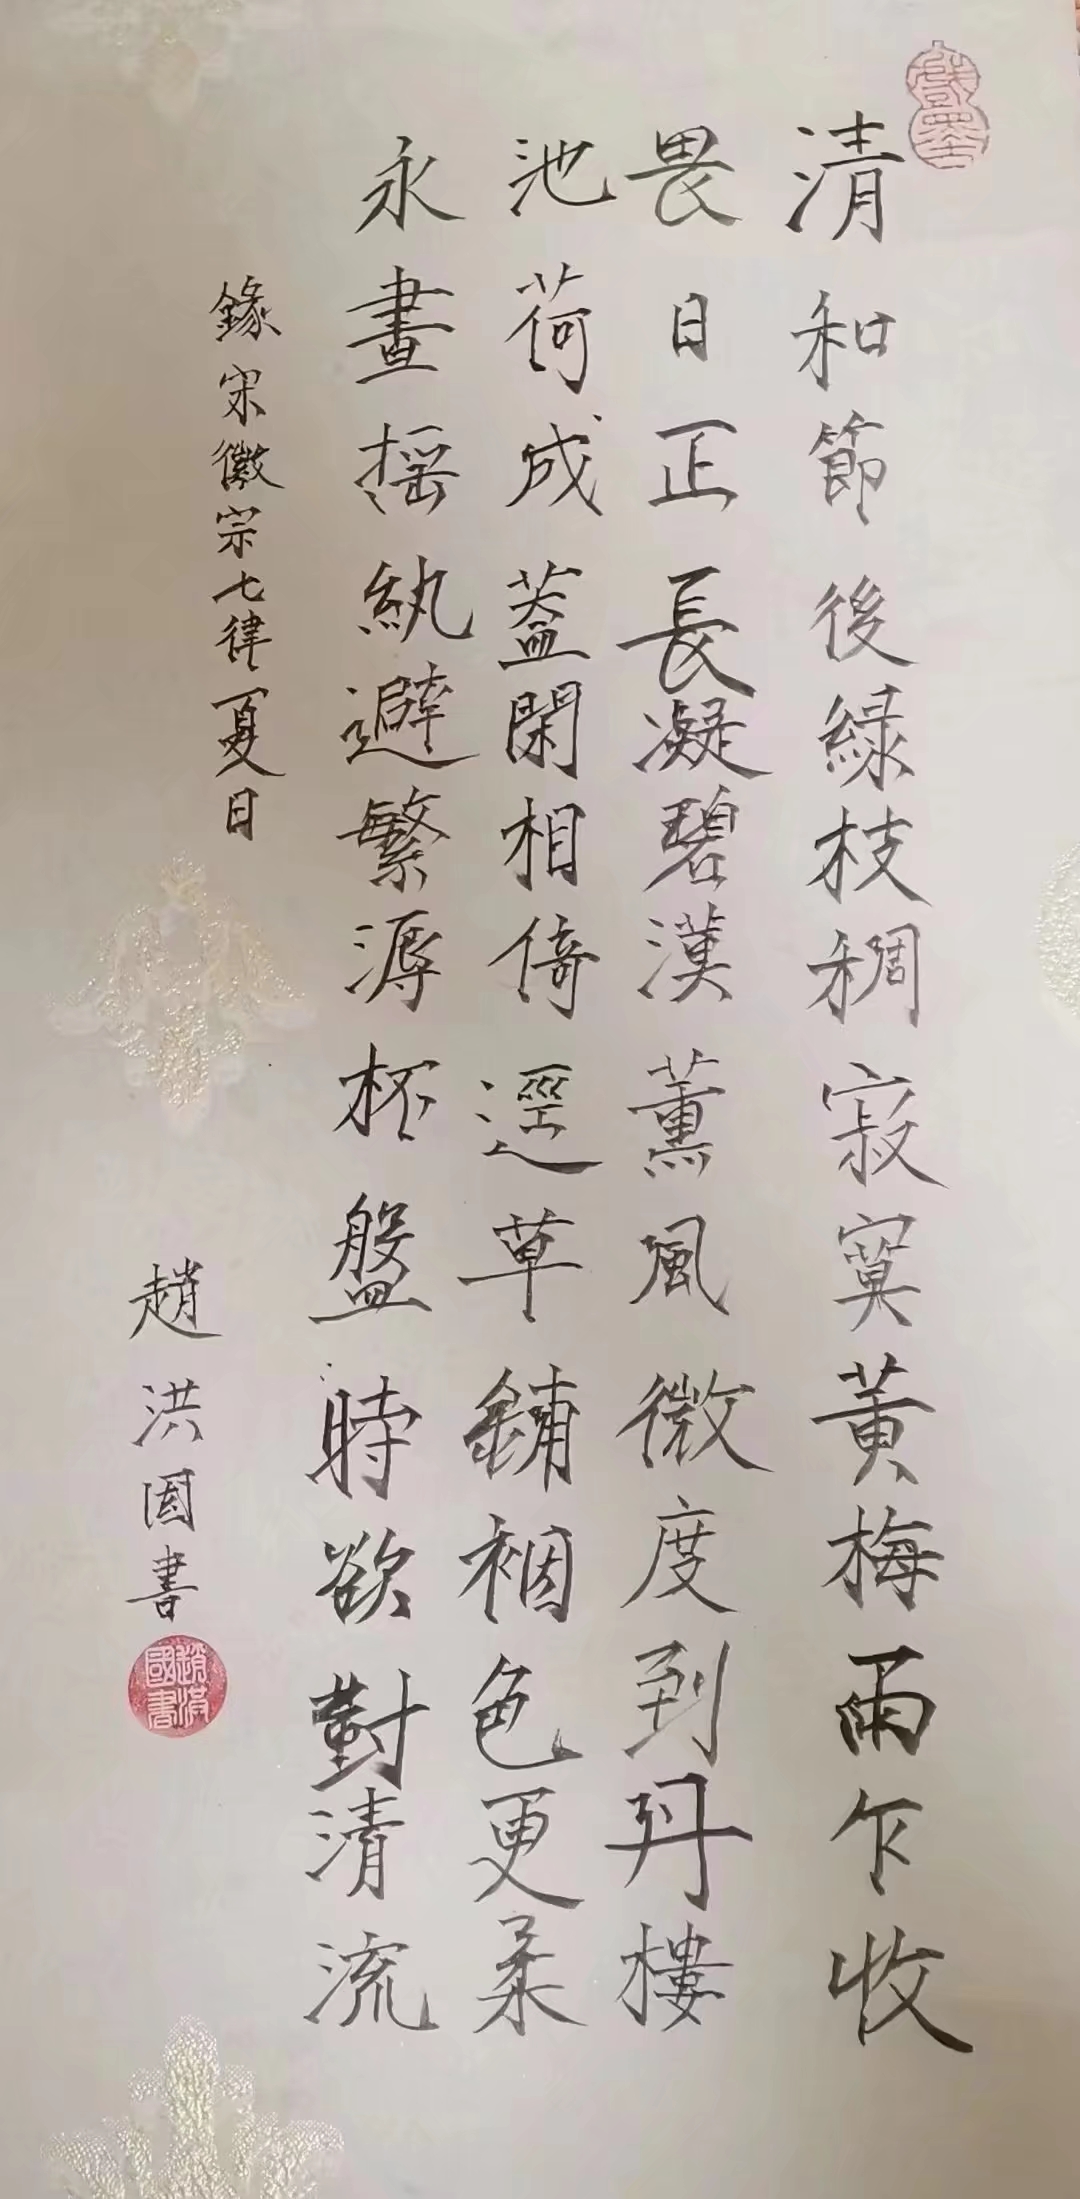 戲墨
清和節後緑枝稠寂寞黄梅雨乍收
畏日正長凝碧漢薰風微度到丹樓
池荷成蓋閑相倚逕草鋪裀色更柔
永晝摇紈避繁溽杯盤時欲對清流
錄宋徽宗七律夏日
趙洪国書
趙洪國書